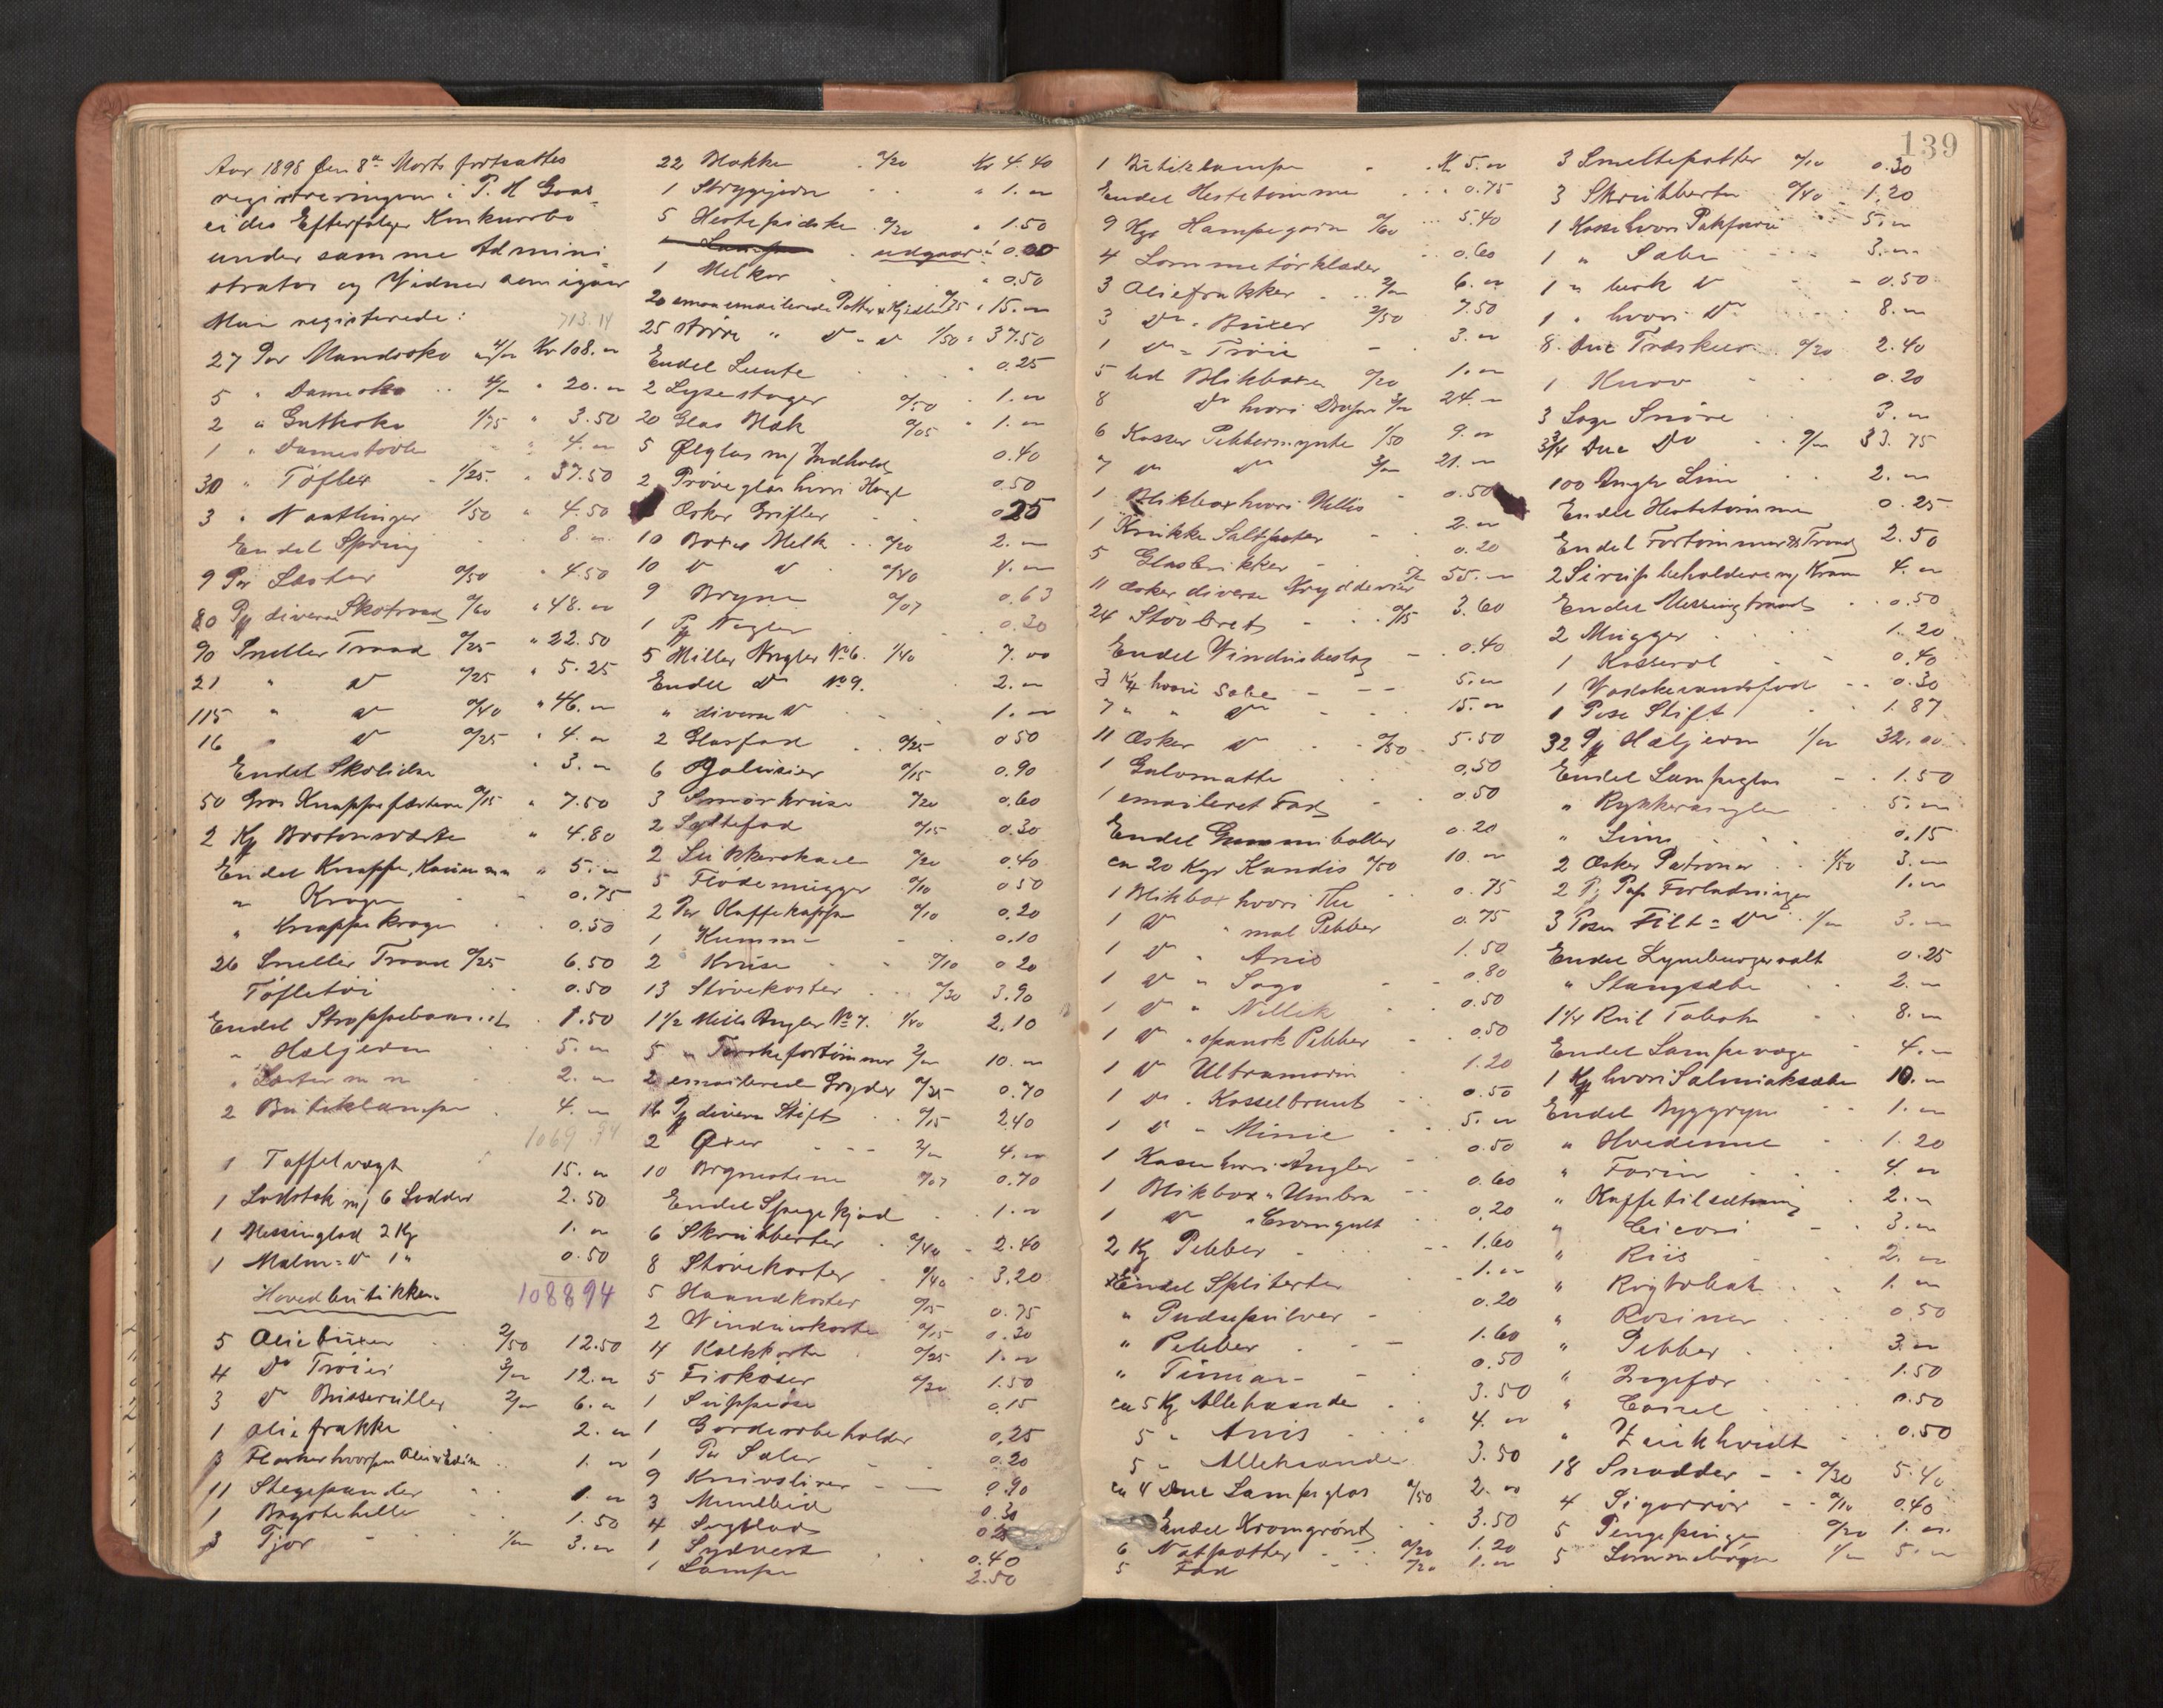 139
Aar 1898 den 8de Marts fortsattes
registreringen i P. H. Goas-
eides Efterfølger Konkursbo
under samme Admini-
strator og Vidner som igaar
Man registerede:
713.14
27 Par Mandssko a 4/00 Kr 108.00
5 " Damesko 4/00 " 20.00
2 " Gutsko 1/75 " 3.50
1 " Damestøvler " 4.00
30 " Tøfler 1/25 " 37.50
3 " Naatlinger 1/50 " 4.50
Endel Spring 8.00
9 Par Læster 0/50 " 4.50
80 Pk diverse Skotraad 0/60 " 48.00
90 Sneller Traad 0/25 " 22.50
21 " Do 0/25 " 5.25
115 " Do 0/40 " 46.00
16 " Do 0/25 " 4.00
Endel Skolidser " 3.00
50 Gros Knappefæstere 0/15 " 7.50
2 Kg " 4.80
Endel Knapper, " 5.00
" Kroger 0.75
" Knappekroger 0.50
26 Sneller Traad 0/25 6.50
Tøfletøi 0.50
Endel 1.50
" Hæljern 5.00
" Læster m m 2.00
2 Butiklamper 4.00
1069.94
1 Taffelvægt 15.00
1 Lodstok m/ 6 Lodder 2.50
1 Messinglod 2 Kg 1.00
1 Malm- Do 1 " 0.50
Hovedbutikken
108894
5 Oliebuxer 2/50 12.50
4 Do Trøier 3/00 12.00
3 Do 2/00 6.00
1 Oliefrakke 2.00
3 Flasker hvorpaa 1.00
11 Stegepander 1.00
1 Bagstehelle 1.50
3 Tjor 1/00 3.00
22 Blokker 0/20 Kr 4.40
1 Strygejern " 1.00
5 Hestepidsker 0/30 " 1.50
1 Lampe udgaar
1 Melkar " 0.50
20 smaa emailerede Potter & Kjedler 0/75 " 15.00
25 større " Do - Do 1/50 " 37.50
Endel Lunte " 0.25
2 Lysestager 0/50 " 1.00
20 Glas Blæk 0/05 " 1.00
5 Ølglas m/ Indhold 0.40
2 Prøveglas hvori Hagl 0.50
Æsker Grifler 0.25
10 Boxer Melk 0/20 2.00
10 Do Do 0/40 4.00
9 Bryner 0/07 0.63
1 Pk Nagler 0.30
5 Miller Angler No 6. 1/40 7.00
Endel Do No 9. 2.00
" diverse Do 1.00
2 Glasfade 0/25 0.50
6 0/15 0.90
3 Smørkruse 0/20 0.60
2 Syltefad 0/15 0.30
2 Sukkerskaal 0/20 0.40
5 Flødemugger 0/10 0.50
2 Par Kaffekopper 0/10 0.20
1 Kumme 0.10
2 Kruse 0/10 0.20
13 Støvekoster 0/30 3.90
1 1/2 Mille Angler No 7. 1/40 2.10
5 " Torskefortømmer 2/00 10.00
2 emailerede Gryder 0/35 0.70
16 Pk diverse Stift 0/15 2.40
2 Øxer 2/00 4.00
10 Brynestene 0/07 0.70
Endel Spegekjød 1.00
6 Skrubberter 0/40 2.40
8 Støvekoster 0/40 3.20
5 Haandkoster 0/15 0.75
2 Vinduskoster 0/15 0.30
4 Kalkkoster 0/25 1.00
5 Fiskøser 0/30 1.50
1 Suppeøse 0.15
1 Garderobeholder 0.25
1 Par Sæler 0.20
9 Knivslirer 0.90
3 Mundbid 0.30
4 Sagblad
1 Sydvest 0.40
1 Lampe 2.50
1 Butiklampe K 5.00
Endel Hestetømme 0.75
9 Kgr Hampegarn 0/60 5.40
4 Lommetørklæder 0.60
3 Oliefrakker 2/00 6.00
3 Do - Buxer 2/50 7.50
1 Do - Trøie 3.00
5 Blikboxer 0/20 1.00
8 Do hvori Drops 3/00 24.00
6 Kasser Pebbermynte 1/50 9.00
7 Do Do 3/00 21.00
1 Blikbox hvori Nellis 0.50
1 Krukke Saltpeter 2.00
5 Glasbrikker 0.20
11 Æsker diverse Krydderier 5/00 55.00
24 Støvbret 0/15 3.60
Endel Vindusbeslag 0.40
3 Ks hvori Sæbe 5.00
7 " " Do 15.00
11 Æsker Do 0/50 5.50
1 Gulvmatte 0.50
1 emaileret Fad 0.50
Endel Gummiboller 0.20
ca 20 Kgr Kandis 0/50 10.00
1 Blikbox hvori The 0.75
1 Do " mal Pebber 0.75
1 Do " Anis 1.50
1 Do " Sago 0.80
1 Do " Nellik 0.50
1 Do " spansk Pebber 0.50
1 Do Ultramarin 1.20
1 Do " Kasselbrunt 0.50
1 Do " Minie 5.00
1 Kasse hvori Angler 0.50
1 Blikbox " Umbra 0.60
1 Do " Cromgult 0.20
2 Kg Pebber 1.60
Endel Spliterter 1.00
" Pudsepulver 0.20
" Pebber 1.60
" Timian 0.50
ca 5 Kg Allehaande 3.50
5 " Anis 4.00
5 " Allehaande 3.50
ca 4 Dus Lampeglas 0/50 2.00
Endel Kromgrønt 3.50
6 Natpotter 0/20 1.20
5 Fade 0/20 1.00
3 Smeltepotter 0/10 0.30
3 Skrubberter 0/40 1.20
1 Kasse hvori Pakfarve 5.00
1 " Sæbe 3.00
1 " Do 0.50
1 " hvori Do 8.00
8 Dus Træskeer 0/30 2.40
1 Kurv 0.20
3 Sage Snøre 3.00
3 3/4 Dus Do 9/00 33.75
100 Angler Line 2.00
Endel Hestetømme 0.25
Endel Fortømmer & Traad 2.50
2 Sirupbeholdere m/ Kran 4.00
Endel Messingtraad 0.50
2 Mugger 1.20
1 Kasserol 0.40
1 Vaskevandsfad 0.30
1 Pose Stift 1.87
32 Pk Hæljern 1/00 32.00
Endel Lampeglas 1.50
" Rykkerangler 5.00
" Lim 0.15
2 Æsker Patroner 1/50 3.00
2 Pk Pap Forladninger 1.00
3 Poser Filt- Do 1/00 3.00
Endel Lyneburgersalt 0.25
" Stangsæbe 2.00
1 1/4 Rul Tobak 8.00
Endel Lampevæger 4.00
1 Ks hvori Salmiaksæbe 10.00
Endel Byggryn 1.00
" Hvedemel 1.20
" Farin 4.00
" Kaffetilsætning 2.00
" Cicori 3.00
" Riis 2.00
" Røgtobak 1.00
" Rosiner 0.50
" Pebber 3.00
" Ingefær 1.50
" Canel 0.50
" Zinkhvidt 0.50
18 Snadder 0/30 5.40
4 Sigarrør 0/10 0.40
5 Pengepunge 0/20 1.00
5 Lommebøger 1/00 5.00